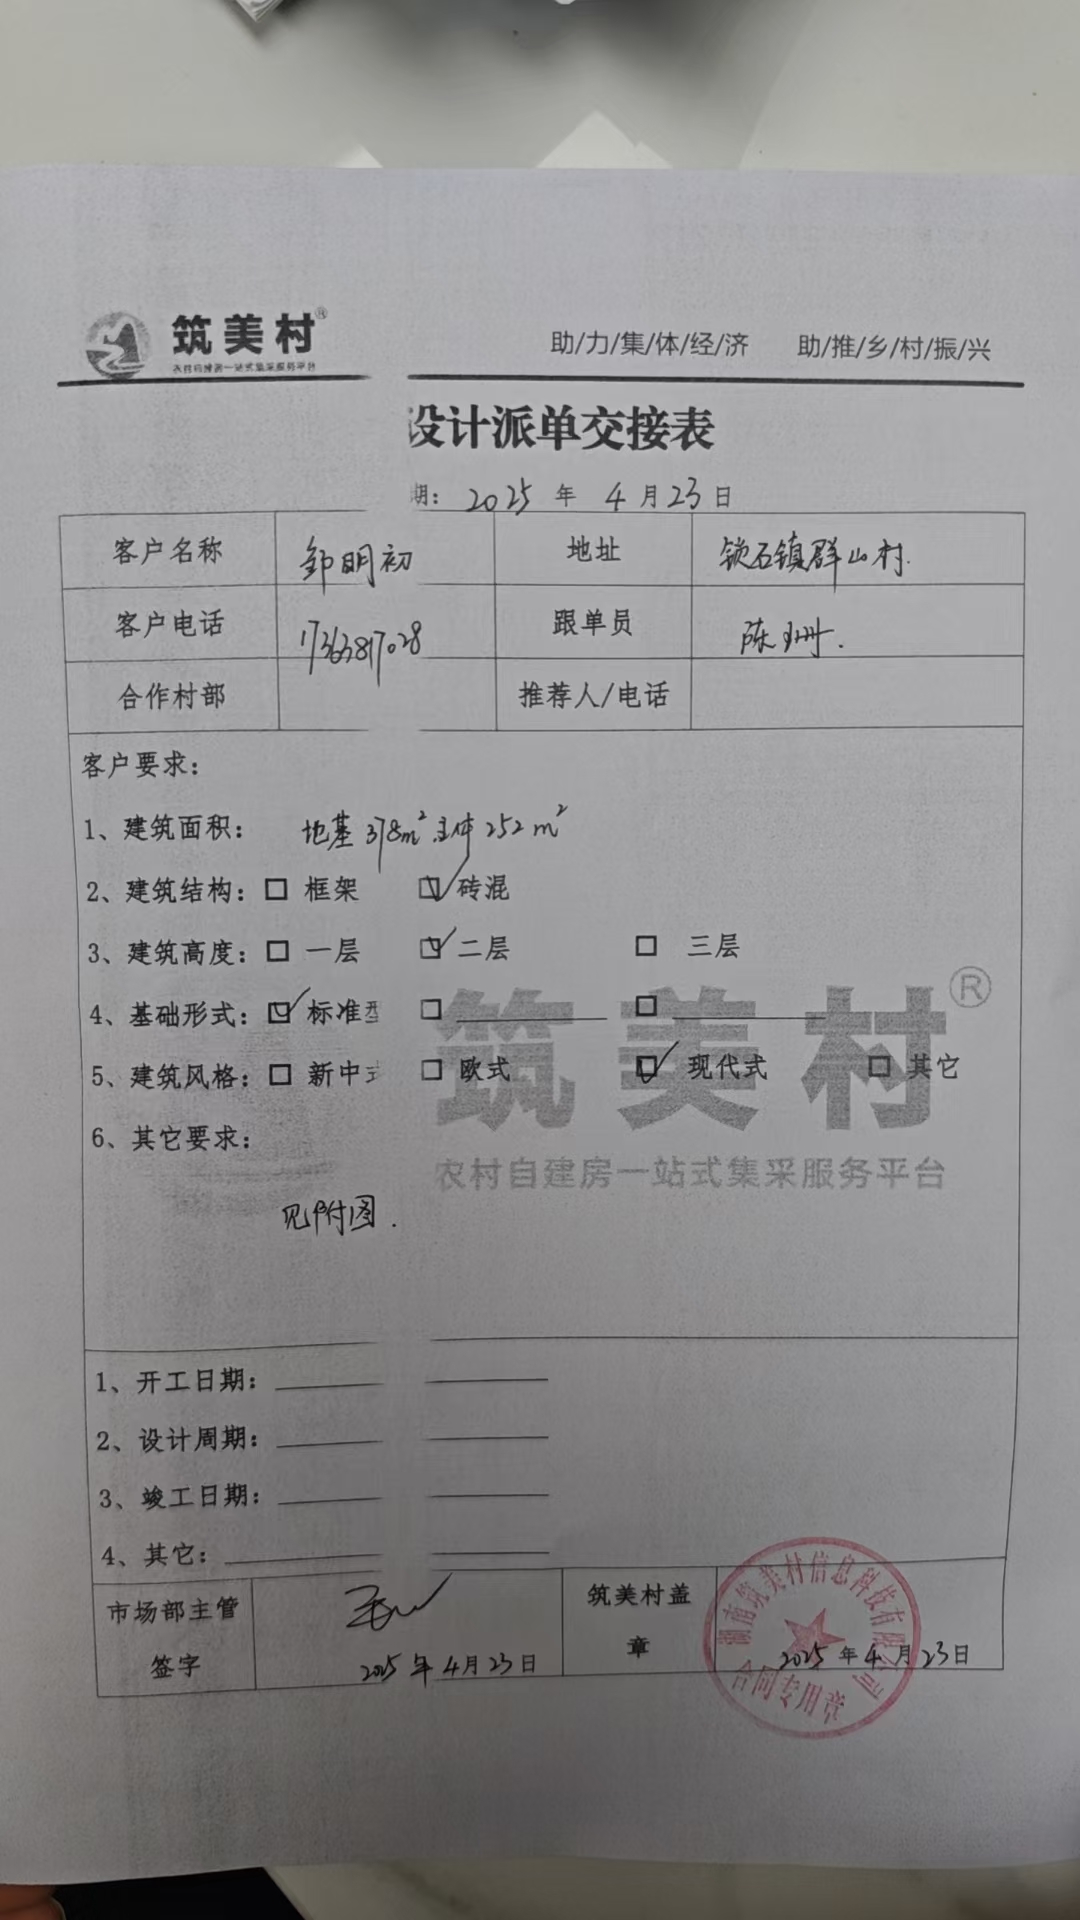 筑美村®
农村自建房一站式集采服务平台
助/力/集/体/经/济 助/推/乡/村/振/兴
设计派单交接表
期: 2025 年 4 月 23 日
客户名称 邹明初 地址 锁石镇群山村.
客户电话 17363817028 跟单员 陈珊.
合作村部 推荐人/电话
客户要求:
1、建筑面积: 地基378m² 主体252m²
2、建筑结构: □ 框架 ☑ 砖混
3、建筑高度: □ 一层 ☑ 二层 □ 三层
4、基础形式: ☑ 标准型 □ □
5、建筑风格: □ 新中式 □ 欧式 ☑ 现代式 □ 其它
6、其它要求:
见附图.
筑美村®
农村自建房一站式集采服务平台
1、开工日期:
2、设计周期:
3、竣工日期:
4、其它:
市场部主管
签字
2025年4月23日
筑美村盖
章
2025年4月23日
湖南筑美村信息科技有限公司
合同专用章